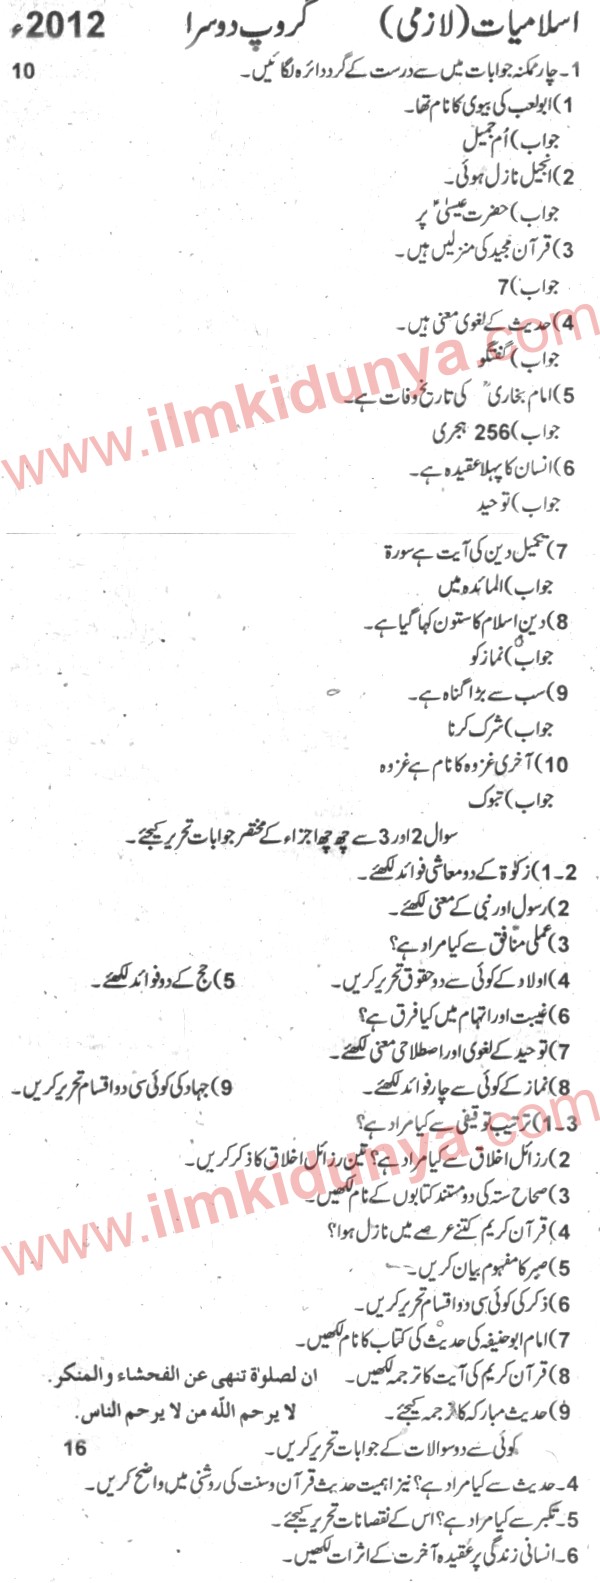 اسلامیات (لازمی) گروپ دوسرا 2012ء
1۔ چار ممکنہ جوابات میں سے درست کے گرد دائرہ لگائیں۔ 10
1) ابولعب کی بیوی کا نام تھا۔
جواب) اُم جمیل
2) انجیل نازل ہوئی۔
جواب) حضرت عیسیٰؑ پر
3) قرآن مجید کی منزلیں ہیں۔
جواب) 7
4) حدیث کے لغوی معنی ہیں۔
جواب) گفتگو
5) امام بخاریؒ کی تاریخ وفات ہے۔
جواب) 256 ہجری
6) انسان کا پہلا عقیدہ ہے۔
جواب) توحید
7) تکمیل دین کی آیت ہے سورۃ
جواب) المائدہ میں
8) دین اسلام کا ستون کہا گیا ہے۔
جواب) نماز کو
9) سب سے بڑا گناہ ہے۔
جواب) شرک کرنا
10) آخری غزوہ کا نام ہے غزوہ
جواب) تبوک
سوال 2 اور 3 سے چھ چھ اجزاء کے مختصر جوابات تحریر کیجئے۔
2۔ 1) زکوٰۃ کے دو معاشی فوائد لکھئے۔
2) رسول اور نبی کے معنی لکھئے۔
3) عملی منافق سے کیا مراد ہے؟
4) اولاد کے کوئی سے دو حقوق تحریر کریں۔ 5) حج کے دو فوائد لکھئے۔
6) غیبت اور اتہام میں کیا فرق ہے؟
7) توحید کے لغوی اور اصطلاحی معنی لکھئے۔
8) نماز کے کوئی سے چار فوائد لکھئے۔ 9) جہاد کی کوئی سی دو اقسام تحریر کریں۔
3۔ 1) ترتیب توقیفی سے کیا مراد ہے؟
2) رزائل اخلاق سے کیا مراد ہے؟ تین رزائل اخلاق کا ذکر کریں۔
3) صحاح ستہ کی دو مستند کتابوں کے نام لکھیں۔
4) قرآن کریم کتنے عرصے میں نازل ہوا؟
5) صبر کا مفہوم بیان کریں۔
6) ذکر کی کوئی سی دو اقسام تحریر کریں۔
7) امام ابو حنیفہ کی حدیث کی کتاب کا نام لکھیں۔
8) قرآن کریم کی آیت کا ترجمہ لکھیں۔ ان لصلوٰة تنهى عن الفحشاء والمنكر.
9) حدیث مبارکہ کا ترجمہ کیجئے۔ لا يرحم اللّٰه من لا يرحم الناس.
کوئی سے دو سوالات کے جوابات تحریر کریں۔ 16
4۔ حدیث سے کیا مراد ہے؟ نیز اہمیت حدیث قرآن وسنت کی روشنی میں واضح کریں۔
5۔ تکبر سے کیا مراد ہے؟ اس کے نقصانات تحریر کیجئے۔
6۔ انسانی زندگی پر عقیدہ آخرت کے اثرات لکھیں۔
www.ilmkidunya.com
www.ilmkidunya.com